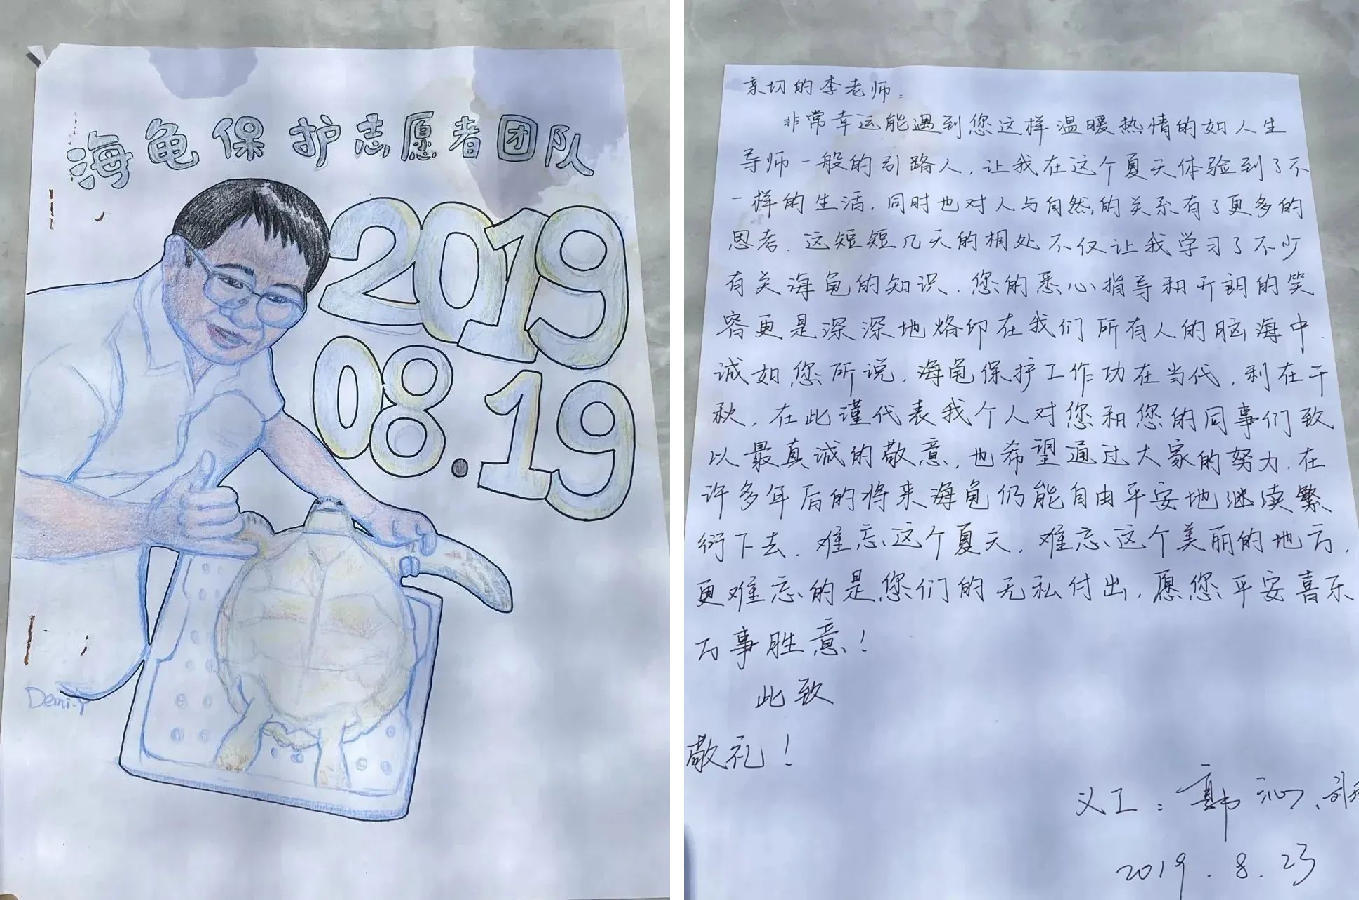 海龟保护志愿者团队
2019
08.19
Demi.Y
亲切的李老师：
非常幸运能遇到您这样温暖热情的如人生
导师一般的引路人，让我在这个夏天体验到了不
一样的生活，同时也对人与自然的关系有了更多的
思考，这短短几天的相处不仅让我学习了不少
有关海龟的知识，您的悉心指导和开朗的笑
容更是深深地烙印在我们所有人的脑海中
诚如您所说，海龟保护工作功在当代，利在千
秋，在此谨代表我个人对您和您的同事们致
以最真诚的敬意，也希望通过大家的努力，在
许多年后的将来海龟们能自由平安地继续繁
衍下去，难忘这个夏天，难忘这个美丽的地方，
更难忘的是您们的无私付出，愿您平安喜乐
万事胜意！
此致
敬礼！
义工：韩沁、
2019.8.23